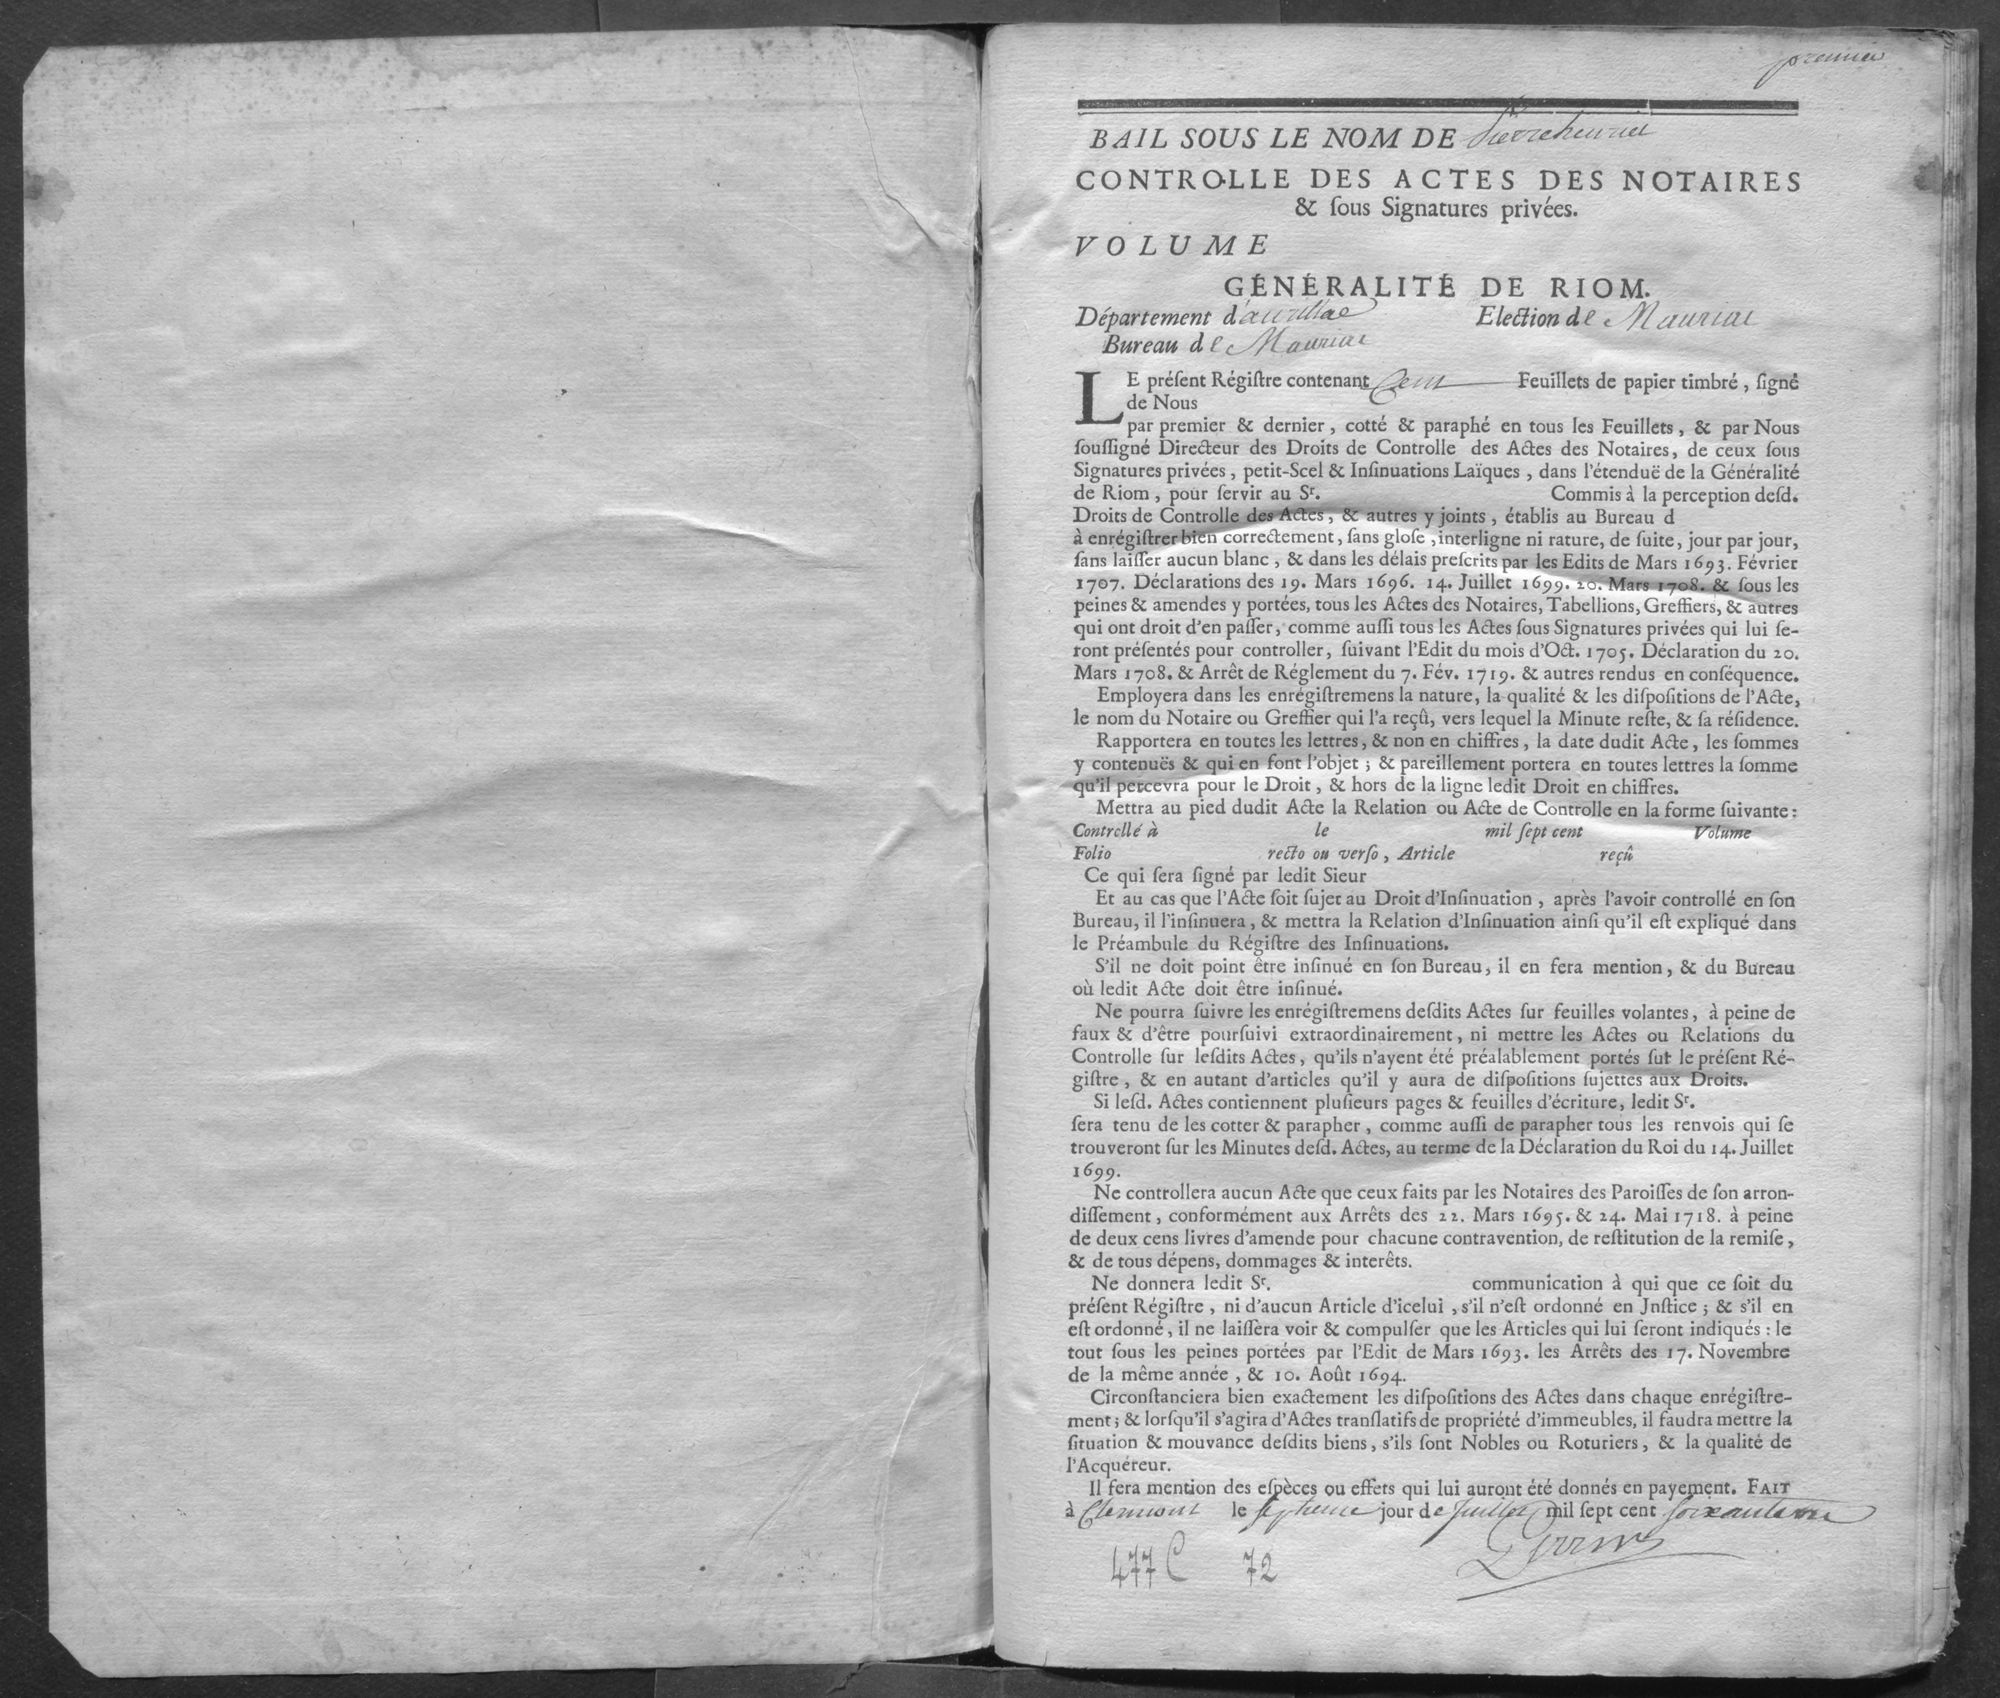 premier
BAIL SOUS LE NOM DE Pierre henriet
CONTROLLE DES ACTES DES NOTAIRES
& ſous Signatures privées.
VOLUME
GÉNÉRALITÉ DE RIOM.
Département d'aurillac Election de Mauriac
Bureau de Mauriac
LE préſent Régiſtre contenant Cent Feuillets de papier timbré, ſigné
de Nous
par premier & dernier, cotté & paraphé en tous les Feuillets, & par Nous
ſouſſigné Directeur des Droits de Controlle des Actes des Notaires, de ceux ſous
Signatures privées, petit-Scel & Inſinuations Laïques, dans l'étenduë de la Généralité
de Riom, pour ſervir au Sr. Commis à la perception deſd.
Droits de Controlle des Actes, & autres y joints, établis au Bureau d
à enrégiſtrer bien correctement, ſans gloſe, interligne ni rature, de ſuite, jour par jour,
ſans laiſſer aucun blanc, & dans les délais preſcrits par les Edits de Mars 1693. Février
1707. Déclarations des 19. Mars 1696. 14. Juillet 1699. 20. Mars 1708. & ſous les
peines & amendes y portées, tous les Actes des Notaires, Tabellions, Greffiers, & autres
qui ont droit d'en paſſer, comme auſſi tous les Actes ſous Signatures privées qui lui ſe-
ront préſentés pour controller, ſuivant l'Edit du mois d'Oct. 1705. Déclaration du 20.
Mars 1708. & Arrêt de Réglement du 7. Fév. 1719. & autres rendus en conſéquence.
Employera dans les enrégiſtremens la nature, la qualité & les diſpoſitions de l'Acte,
le nom du Notaire ou Greffier qui l'a reçû, vers lequel la Minute reſte, & ſa réſidence.
Rapportera en toutes les lettres, & non en chiffres, la date dudit Acte, les ſommes
y contenuës & qui en font l'objet; & pareillement portera en toutes lettres la ſomme
qu'il percevra pour le Droit, & hors de la ligne ledit Droit en chiffres.
Mettra au pied dudit Acte la Relation ou Acte de Controlle en la forme ſuivante:
Controllé à le mil ſept cent Volume
Folio recto ou verſo, Article reçû
Ce qui ſera ſigné par ledit Sieur
Et au cas que l'Acte ſoit ſujet au Droit d'Inſinuation, après l'avoir controllé en ſon
Bureau, il l'inſinuera, & mettra la Relation d'Inſinuation ainſi qu'il eſt expliqué dans
le Préambule du Régiſtre des Inſinuations.
S'il ne doit point être inſinué en ſon Bureau, il en fera mention, & du Bureau
où ledit Acte doit être inſinué.
Ne pourra ſuivre les enrégiſtremens deſdits Actes ſur feuilles volantes, à peine de
faux & d'être pourſuivi extraordinairement, ni mettre les Actes ou Relations du
Controlle ſur leſdits Actes, qu'ils n'ayent été préalablement portés ſut le préſent Ré-
giſtre, & en autant d'articles qu'il y aura de diſpoſitions ſujettes aux Droits.
Si leſd. Actes contiennent pluſieurs pages & feuilles d'écriture, ledit Sr.
ſera tenu de les cotter & parapher, comme auſſi de parapher tous les renvois qui ſe
trouveront ſur les Minutes deſd. Actes, au terme de la Déclaration du Roi du 14. Juillet
1699.
Ne controllera aucun Acte que ceux faits par les Notaires des Paroiſſes de ſon arron-
diſſement, conformément aux Arrêts des 22. Mars 1695. & 24. Mai 1718. à peine
de deux cens livres d'amende pour chacune contravention, de reſtitution de la remiſe,
& de tous dépens, dommages & interêts.
Ne donnera ledit Sr. communication à qui que ce ſoit du
préſent Régiſtre, ni d'aucun Article d'icelui, s'il n'eſt ordonné en Jnſtice; & s'il en
eſt ordonné, il ne laiſſera voir & compulſer que les Articles qui lui ſeront indiqués: le
tout ſous les peines portées par l'Edit de Mars 1693. les Arrêts des 17. Novembre
de la même année, & 10. Août 1694.
Circonſtanciera bien exactement les diſpoſitions des Actes dans chaque enrégiſtre-
ment; & lorſqu'il s'agira d'Actes tranſlatifs de propriété d'immeubles, il faudra mettre la
ſituation & mouvance deſdits biens, s'ils ſont Nobles ou Roturiers, & la qualité de
l'Acquéreur.
Il fera mention des eſpèces ou effets qui lui auront été donnés en payement. FAIT
à Clermont le ſeptieme jour de Juillet mil ſept cent
477 C 72